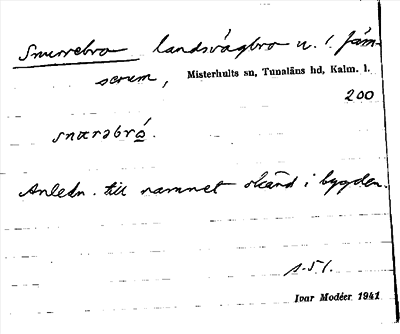 Snurrebro landsvägbro n. l. Jäm-
serum, Misterhults sn, Tunaläns hd, Kalm. l.
200
snurəbró.
Anledn. till namnet okänd i bygden.
s. 51.
Ivar Modéer 1941